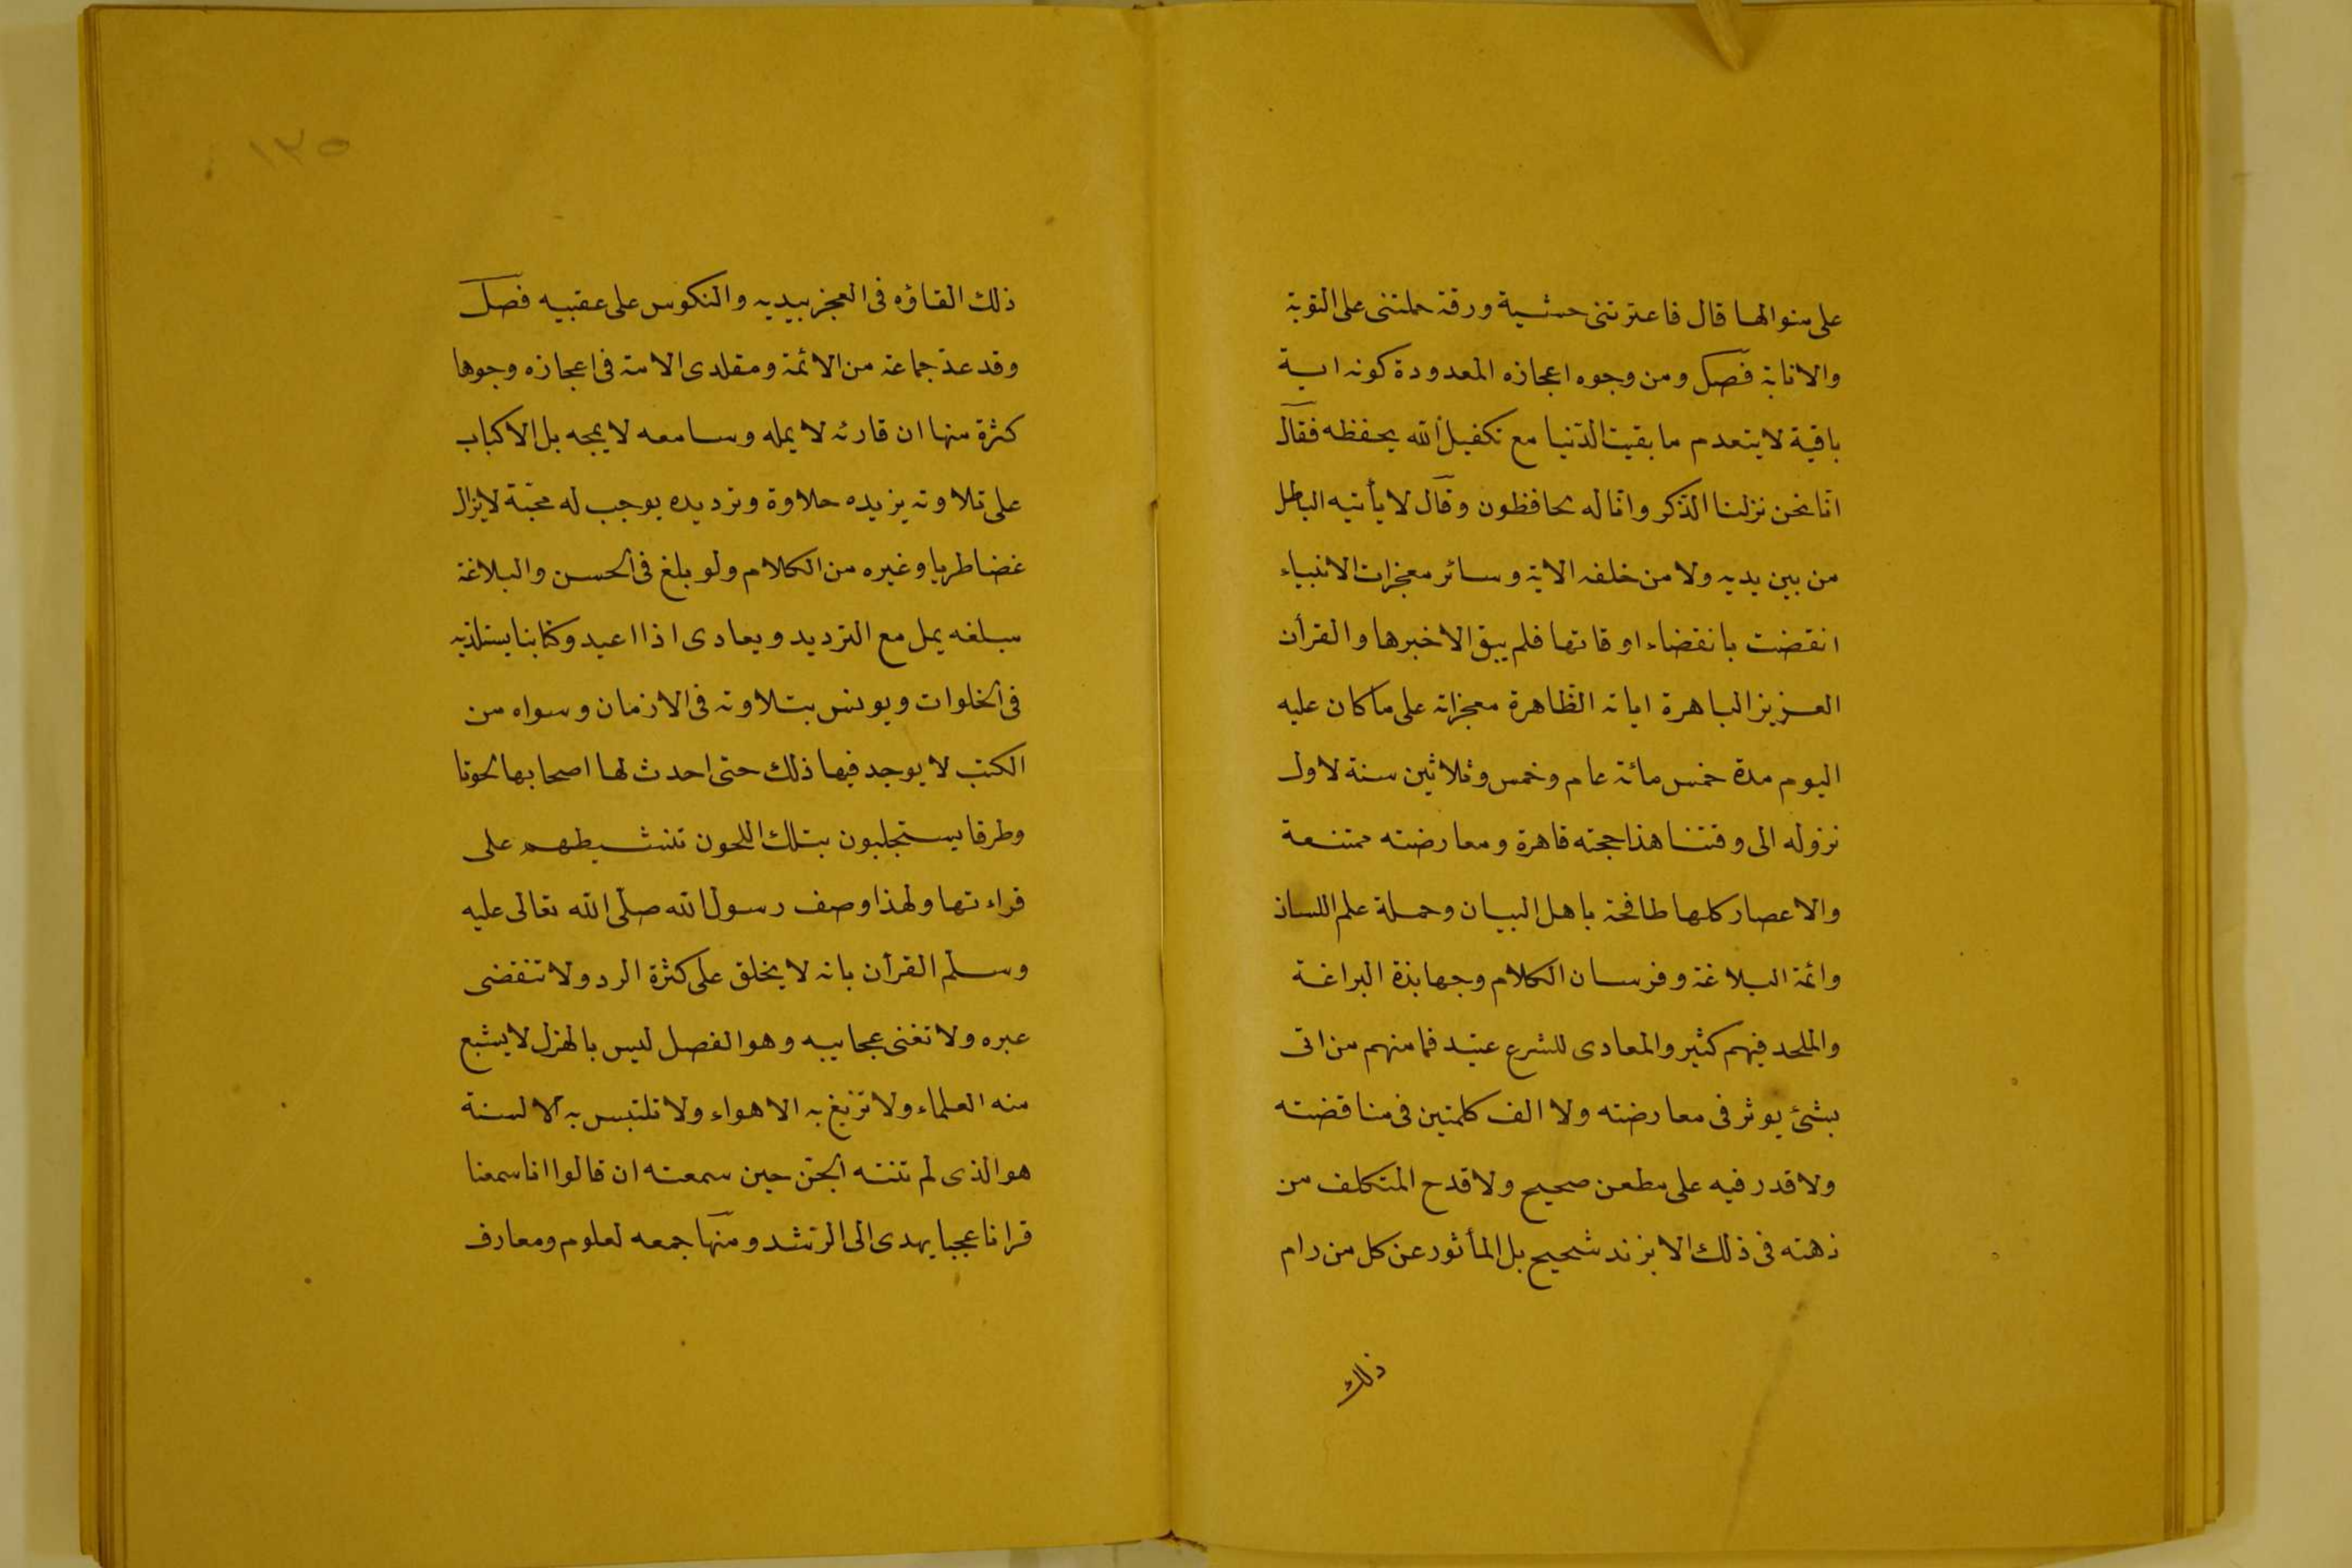 على منوالها قال فاعترتنى خشية ورقة حملتنى على التوبة
والانابة فصل ومن وجوه اعجازه المعدودة كونه اية
باقية لا يتعدم ما بقيت الدّنيا مع تكفيل الله بحفظه فقال
انّا نحن نزلنا الذّكر وانّا له لحافظون وقال لا يأتيه الباطل
من بين يديه ولا من خلفه الاية وسائر معجزات الانبياء
انقضت بانقضاء اوقاتها فلم يبق الا خبرها والقرأن
العزيز الباهرة اياته الظّاهرة معجزاته على ما كان عليه
اليوم مدة خمس مائة عام وخمس وثلاثين سنة لاول
نزوله الى وقتنا هذا حجته قاهرة ومعارضته ممتنعة
والاعصار كلها طافحة باهل البيان وحملة علم اللسان
وائمة البلاغة وفرسان الكلام وجهابذة البراعة
والملحد فيهم كثير والمعادى للشرع عتيد فما منهم من اتى
بشئ يوثر فى معارضته ولا الف كلمتين فى مناقضته
ولا قدر فيه على مطعن صحيح ولا قدح المتكلف من
ذهنه فى ذلك الا بزند شحيح بل المأثور عن كل من رام
ذلك
١٣٥
ذلك القاؤه فى العجز بيديه والنكوس على عقبيه فصل
وقد عدّ جماعة من الائمة ومقلدى الامة فى اعجازه وجوها
كثرة منها ان قارئه لا يمله وسامعه لا يمجه بل الاكباب
على تلاوته يزيده حلاوة وترديده يوجب له محبّة لا يزال
غضا طريا وغيره من الكلام ولو بلغ فى الحسن والبلاغة
مبلغه يمل مع الترديد ويعادى اذا اعيد وكتابنا يستلذّ به
فى الخلوات ويونس بتلاوته فى الازمان وسواه من
الكتب لا يوجد فيها ذلك حتى احدث لها اصحابها لحونا
وطرقا يستجلبون بتلك اللحون تنشيطهم على
قراءتها ولهذا وصف رسول الله صلّى الله تعالى عليه
وسلم القرأن بانه لا يخلق على كثرة الرد ولا تنقضى
عبره ولا تغنى عجايبه وهو الفصل ليس بالهزل لا يشبع
منه العلماء ولا تزيغ به الاهواء ولا تلتبس به الالسنة
هو الذى لم تنته الجنّ حين سمعته ان قالوا انا سمعنا
قرانا عجبا يهدى الى الرشد ومنها جمعه لعلوم ومعارف